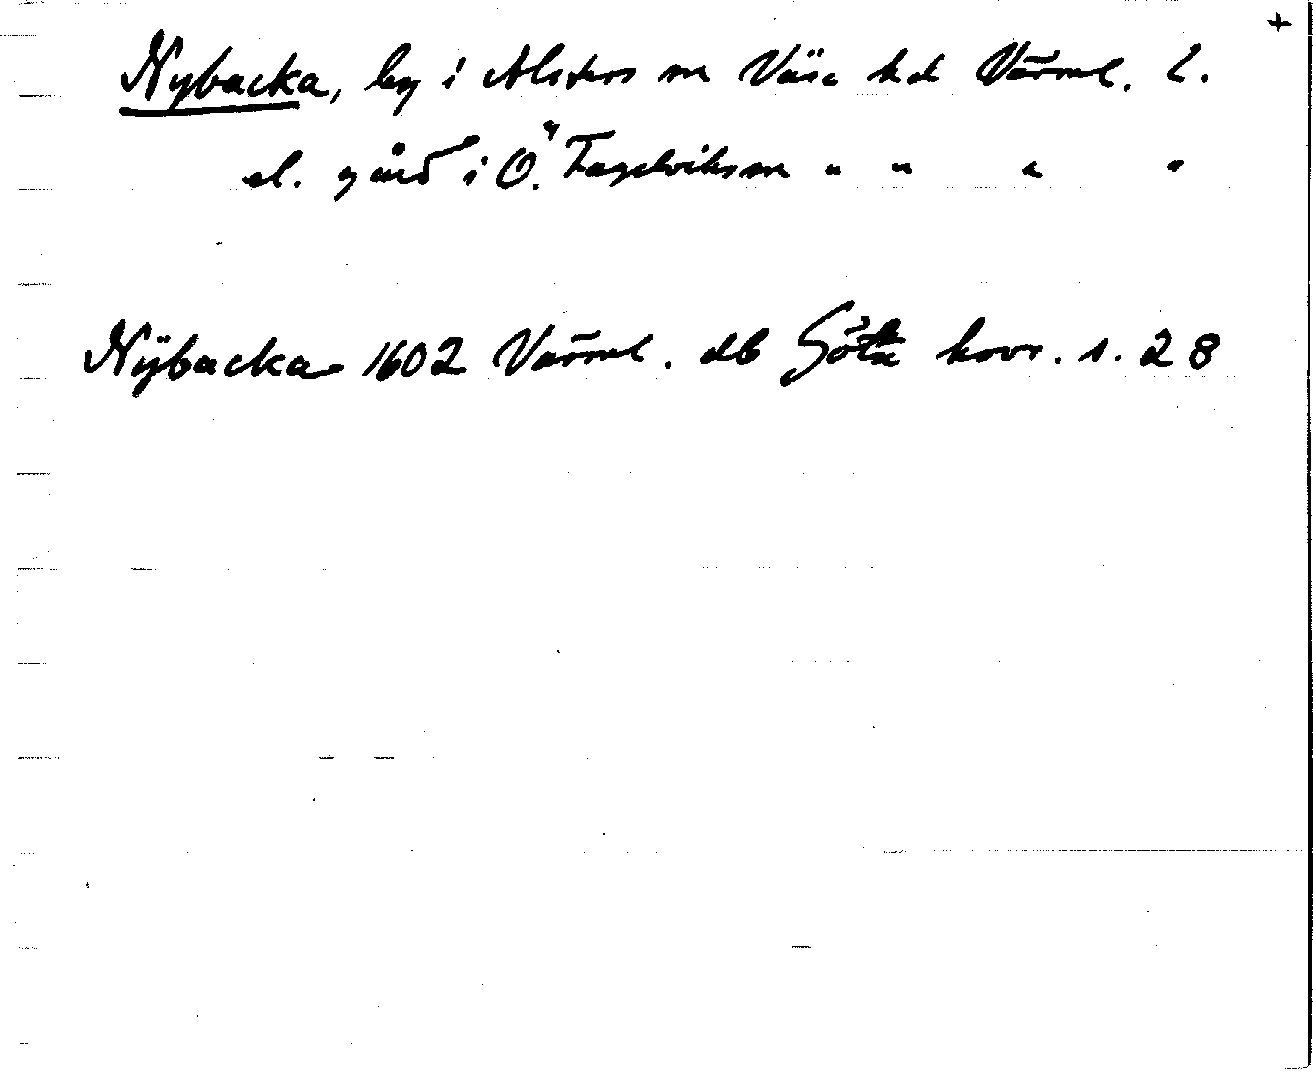 +
Nybacka, by i Alsters sn Väse hd Värml. l.
el. gård i Ö. Fågelviks sn " " " "
Nÿbacka 1602 Värml. db Göta hovr. s. 28